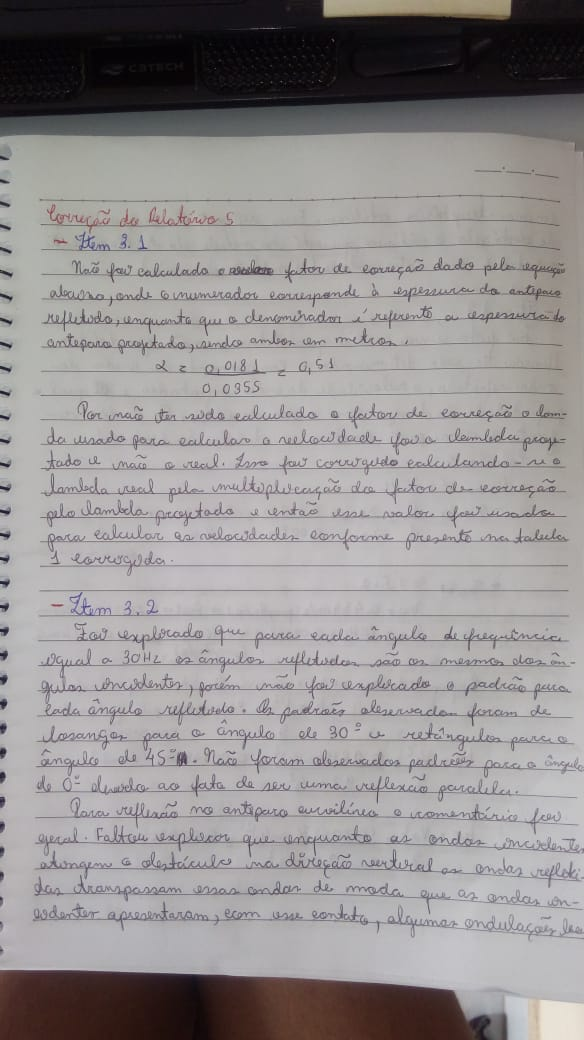 C3TECH
Correção do Relatório 5
- Item 3.1
Não foi calculado o fator de correção dado pela equação
abaixo, onde o numerador corresponde à espessura do anteparo
refletido, enquanto que o denominador é referente a espessura do
anteparo projetado, sendo ambos em metros.
α = 0,0181 = 0,51
0,0355
Por não ter sido calculado o fator de correção o lam-
da usado para calcular a velocidade foi o lambda proje-
tado e não o real. Isso foi corrigido calculando-se o
lambda real pela multiplicação do fator de correção
pelo lambda projetado e então esse valor foi usado
para calcular as velocidades conforme presente na tabela
1 corrigida.
- Item 3.2
Foi explicado que para cada ângulo de frequência
igual a 30Hz os ângulos refletidos são os mesmos dos ân-
gulos incidentes, porém não foi explicado o padrão para
cada ângulo refletido. Os padrões observados foram de
losangos para o ângulo de 30° e retângulos para o
ângulo de 45°. Não foram observados padrões para o ângulo
de 0° devido ao fato de ser uma reflexão paralela.
Para reflexão no anteparo curvilíneo o comentário foi
geral. Faltou explicar que enquanto as ondas incidentes
atingem o obstáculo na direção vertical as ondas refleti-
das transpassam essas ondas de modo que as ondas in-
cidentes apresentaram, com esse contato, algumas ondulações